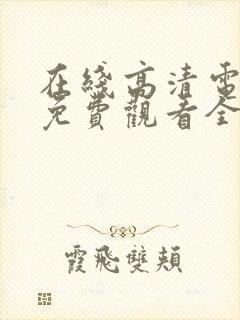 在綫高清電
免費觀看全
霞飛雙頰